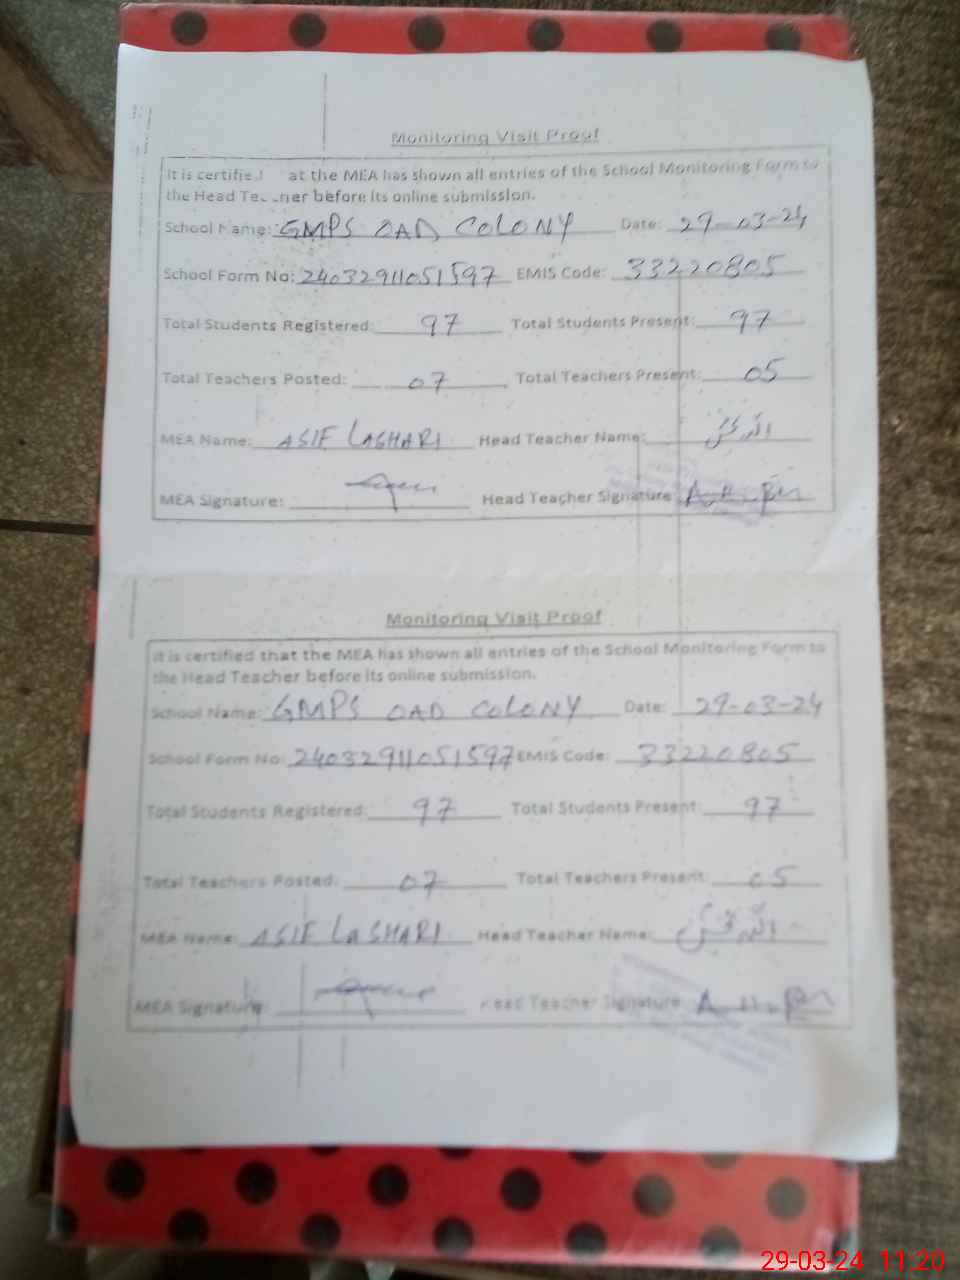 Monitoring Visit Proof
It is certified at the MEA has shown all entries of the School Monitoring Form to
the Head Teacher before its online submission.
School Name: GMPS OAD COLONY Date: 29-03-24
School Form No: 24032911051597 EMIS Code: 33220805
Total Students Registered: 97 Total Students Present: 97
Total Teachers Posted: 07 Total Teachers Present: 05
MEA Name: ASIF LASHARI Head Teacher Name:
MEA Signature: Head Teacher Signature
Monitoring Visit Proof
It is certified that the MEA has shown all entries of the School Monitoring Form to
the Head Teacher before its online submission.
School Name: GMPS OAD COLONY Date: 29-03-24
School Form No: 24032911051597 EMIS Code: 33220805
Total Students Registered: 97 Total Students Present: 97
Total Teachers Posted: 07 Total Teachers Present: 05
MEA Name: ASIF LASHARI Head Teacher Name:
MEA Signature: Head Teacher Signature
29-03-24 11:20